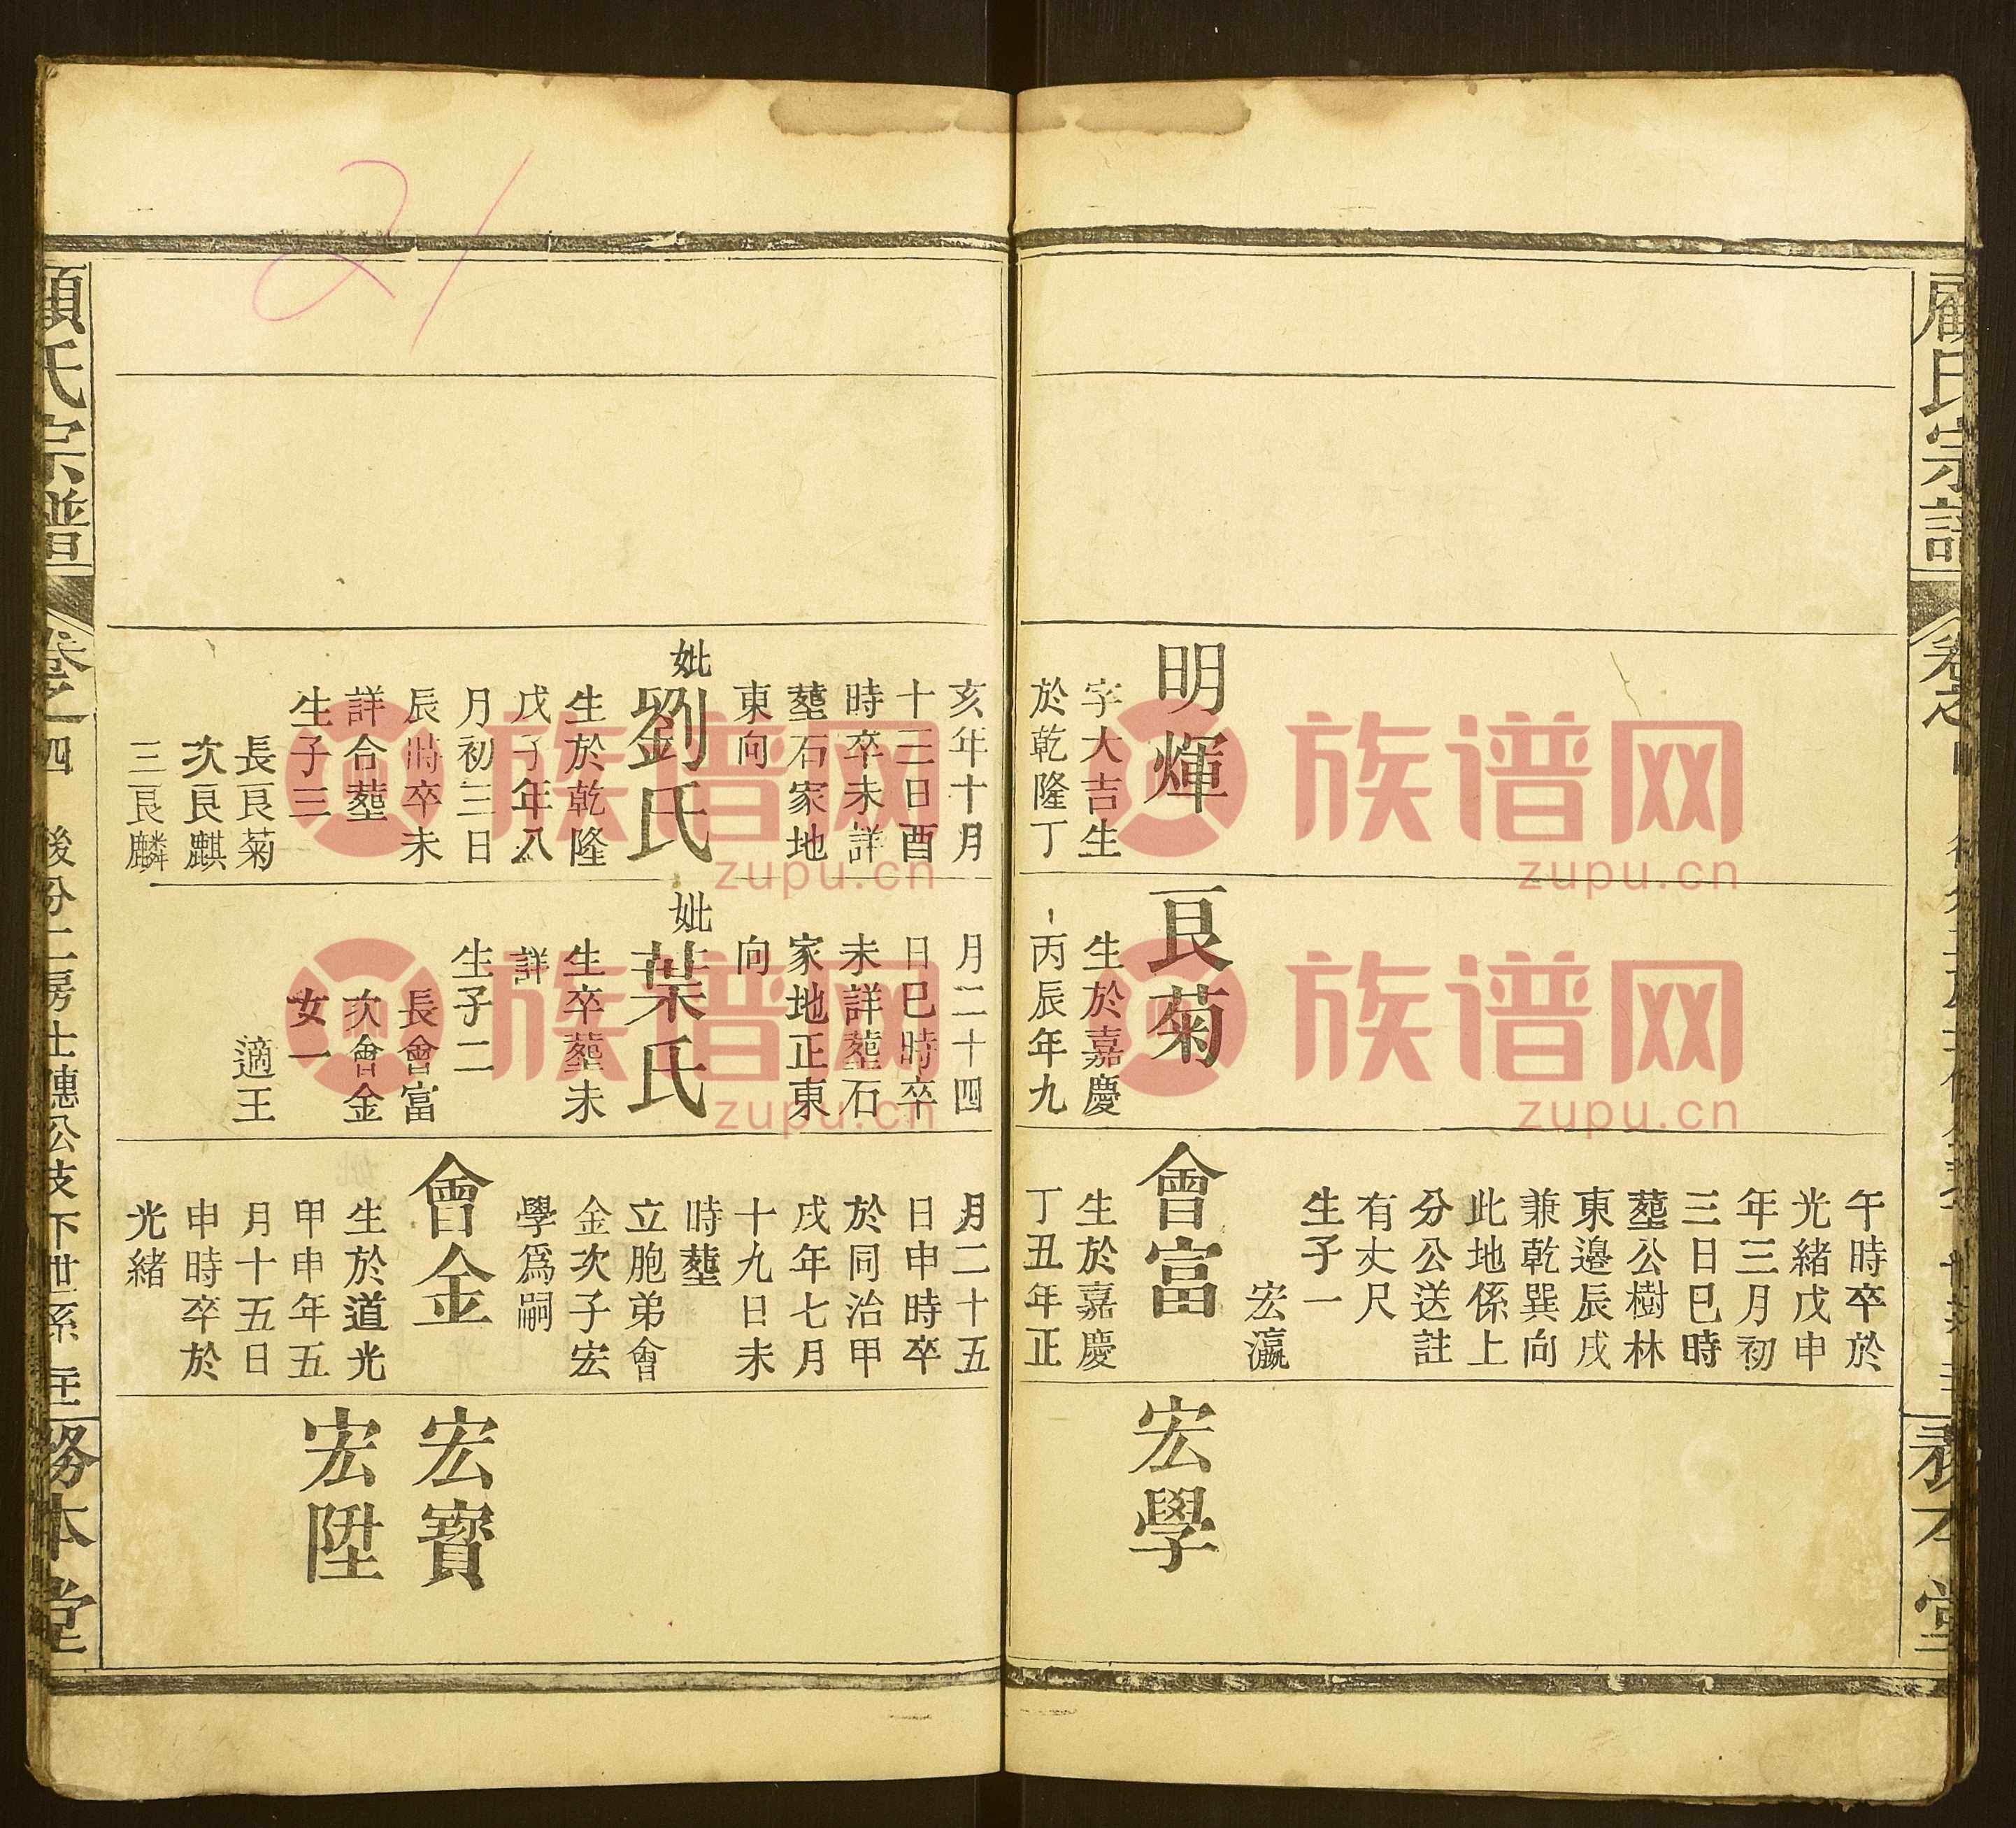 顧氏宗譜
明煇
字大吉生
於乾隆丁
艮菊
生於嘉慶
丙辰年九
午時卒於
光緒戊申
年三月初
三日巳時
塟公樹林
東邊辰戌
兼乾巽向
此地係上
分公送註
有丈尺
生子一
宏瀛
會富
生於嘉慶
丁丑年正
宏學
亥年十月
十二日酉
時卒未詳
塟石家地
東向
妣
劉氏
生於乾隆
戊子年八
月初三日
辰時卒未
詳合塟
生子三
長艮菊
次艮麒
三艮麟
月二十四
日巳時卒
未詳塟石
家地正東
向
妣
葉氏
生卒塟未
詳
生子二
長會富
次會金
女一
適王
月二十五
日申時卒
於同治甲
戌年七月
十九日未
時塟
立胞弟會
金次子宏
學爲嗣
會金
生於道光
甲申年五
月十五日
申時卒於
光緒
宏寶
宏陞
顧氏宗譜
卷之四
後分二房士德公支下世系
務本堂
族谱网
zupu.cn
族谱网
zupu.cn
族谱网
zupu.cn
族谱网
zupu.cn
21